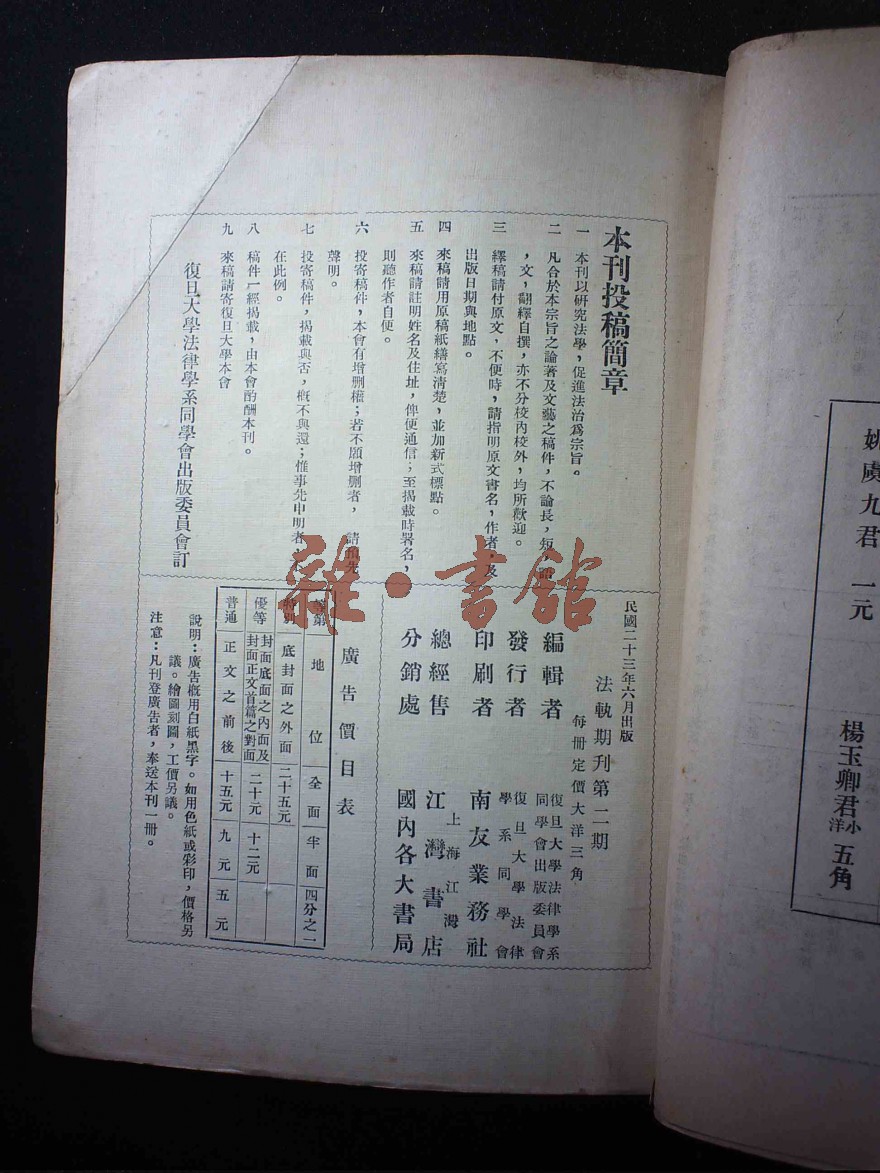 本刊投稿簡章
一　本刊以研究法學，促進法治爲宗旨。
二　凡合於本宗旨之論著及文藝之稿件，不論長，短，語
，文，翻繹自撰，亦不分校內校外，均所歡迎。
三　繹稿請付原文，不便時，請指明原文書名，作者，及
出版日期與地點。
四　來稿請用原稿紙繕寫清楚，並加新式標點。
五　來稿請註明姓名及住址，俾便通信；至揭載時署名，
則聽作者自便。
六　投寄稿件，本會有增刪權；若不願增刪者，請預先
聲明。
七　投寄稿件，揭載與否，概不與還；惟事先申明者，
在此例。
八　稿件一經揭載，由本會酌酬本刊。
九　來稿請寄復旦大學本會
復旦大學法律學系同學會出版委員會訂
民國二十三年六月出版
法軌期刊第二期
每冊定價大洋三角
編輯者　復旦大學法律學系
同學會出版委員會
發行者　復旦大學法律
學系同學會
印刷者　南友業務社
總經售　上海江灣
江灣書店
分銷處　國內各大書局
廣告價目表
等第　地位　全面　半面　四分之一
特別　底封面之外面　二十五元
優等　封面底面之內面及
封面正文首篇之對面　二十元　十二元
普通　正文之前後　十五元　九元　五元
說明：廣告概用白紙黑字。如用色紙或彩印，價格另
議。繪圖刻圖，工價另議。
注意：凡刊登廣告者，奉送本刊一冊。
姚虞九君　一元
楊玉卿君　小洋　五角
雜·書館